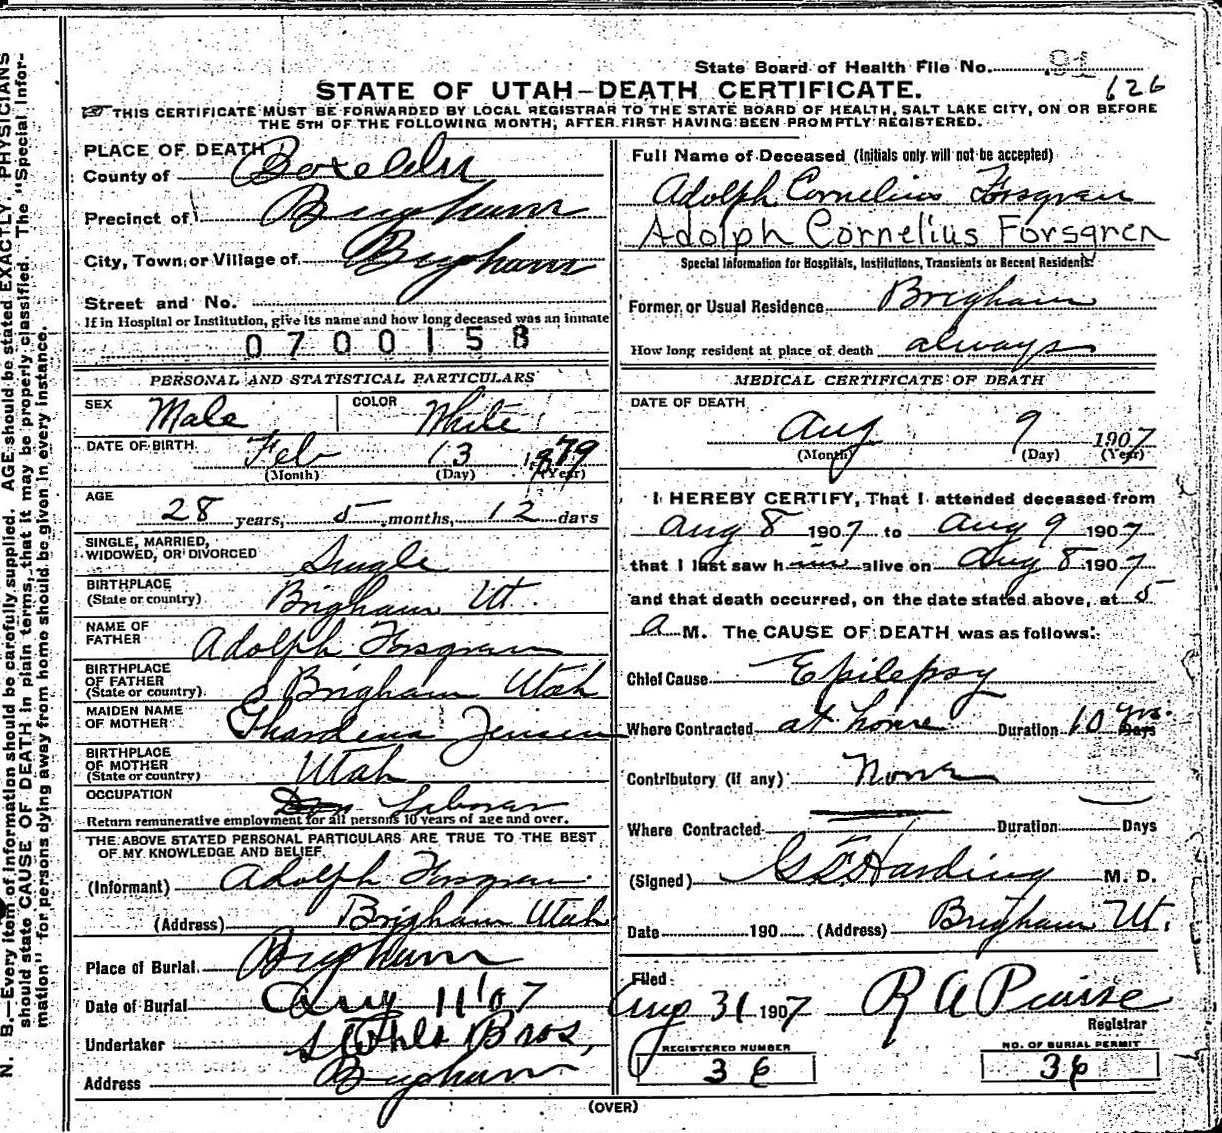 State Board of Health File No. 91
626
STATE OF UTAH—DEATH CERTIFICATE.
THIS CERTIFICATE MUST BE FORWARDED BY LOCAL REGISTRAR TO THE STATE BOARD OF HEALTH, SALT LAKE CITY, ON OR BEFORE
THE 5TH OF THE FOLLOWING MONTH, AFTER FIRST HAVING BEEN PROMPTLY REGISTERED.
PLACE OF DEATH
County of Boxelder
Precinct of Brigham
City, Town or Village of Brigham
Street and No.
If in Hospital or Institution, give its name and how long deceased was an inmate
0700158
PERSONAL AND STATISTICAL PARTICULARS
SEX Male COLOR White
DATE OF BIRTH Feb 13 1879
(Month) (Day) (Year)
AGE
28 years, 5 months, 12 days
SINGLE, MARRIED,
WIDOWED, OR DIVORCED Single
BIRTHPLACE
(State or country) Brigham Ut.
NAME OF
FATHER Adolph Forsgren
BIRTHPLACE
OF FATHER
(State or country) Brigham Utah
MAIDEN NAME
OF MOTHER Jensen
BIRTHPLACE
OF MOTHER
(State or country) Utah
OCCUPATION Laborer
Return remunerative employment for all persons 10 years of age and over.
THE ABOVE STATED PERSONAL PARTICULARS ARE TRUE TO THE BEST
OF MY KNOWLEDGE AND BELIEF
(Informant) Adolph Forsgren
(Address) Brigham Utah
Place of Burial Brigham
Date of Burial Aug 11 '07
Undertaker Bros,
Address Brigham
Full Name of Deceased (Initials only will not be accepted)
Adolph Cornelius Forsgren
Adolph Cornelius Forsgren
Special Information for Hospitals, Institutions, Transients or Recent Residents:
Former or Usual Residence Brigham
How long resident at place of death always
MEDICAL CERTIFICATE OF DEATH
DATE OF DEATH
Aug 9 1907
(Month) (Day) (Year)
I HEREBY CERTIFY, That I attended deceased from
Aug 8 1907 to Aug 9 1907
that I last saw him alive on Aug 8 1907
and that death occurred, on the date stated above, at 5
A M. The CAUSE OF DEATH was as follows:
Chief Cause Epilepsy
Where Contracted at home Duration 10 yrs. Days
Contributory (if any) None
Where Contracted Duration Days
(Signed) Harding M. D.
Date 190 (Address) Brigham Ut.
Filed
Aug 31 1907 R A Pearse
Registrar
REGISTERED NUMBER
36
NO. OF BURIAL PERMIT
36
(OVER)
N. B.—Every item of information should be carefully supplied. AGE should be stated EXACTLY. PHYSICIANS
should state CAUSE OF DEATH in plain terms, that it may be properly classified. The "Special Infor-
mation" for persons dying away from home should be given in every instance.